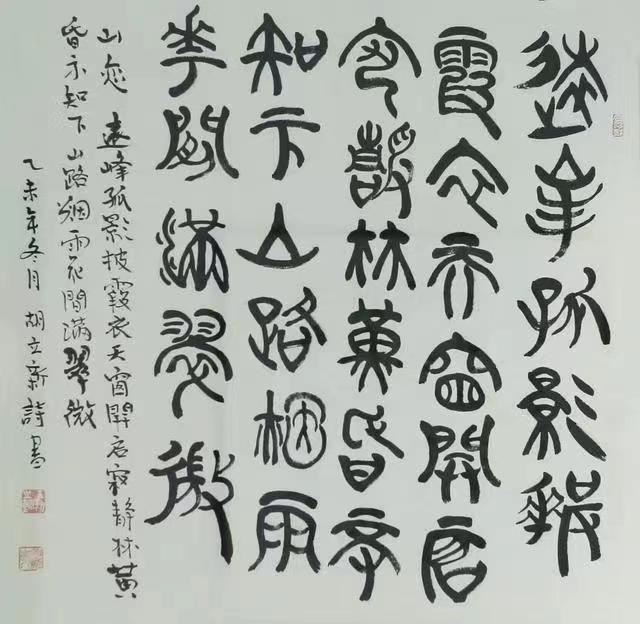 遠峰孤影披
霞衣天窗開启
寂静林黄昏不
知下山路烟雨
花間满翠微
山恋 遠峰孤影披霞衣天窗開启寂静林黄
昏不知下山路烟雨花間满翠微
乙未年冬月 胡立新詩書